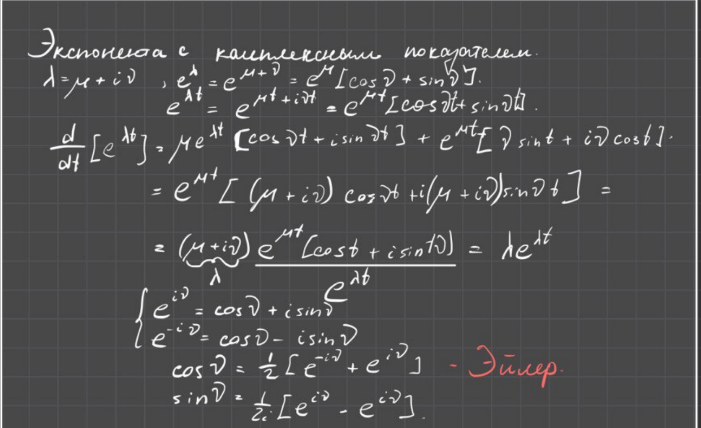 Экспонента с комплексным показателем.
λ = μ + iν , e^λ = e^{μ+ν} = e^μ [cosν + sinν].
e^{λt} = e^{μt + iνt} = e^{μt} [cosνt + sinνt].
d/dt [e^{λt}] = μe^{λt} [cosνt + isinνt] + e^{μt} [ν sint + iν cost].
= e^{μt} [(μ + iν) cosνt + i(μ + iν) sinνt] =
= (μ + iν) e^{μt} [cost + isintν) = λe^{λt}
λ e^{λt}
{ e^{iν} = cosν + isinν
e^{-iν} = cosν - isinν
cosν = 1/2 [e^{-iν} + e^{iν}] - Эйлер.
sinν = 1/2i [e^{iν} - e^{iν}].